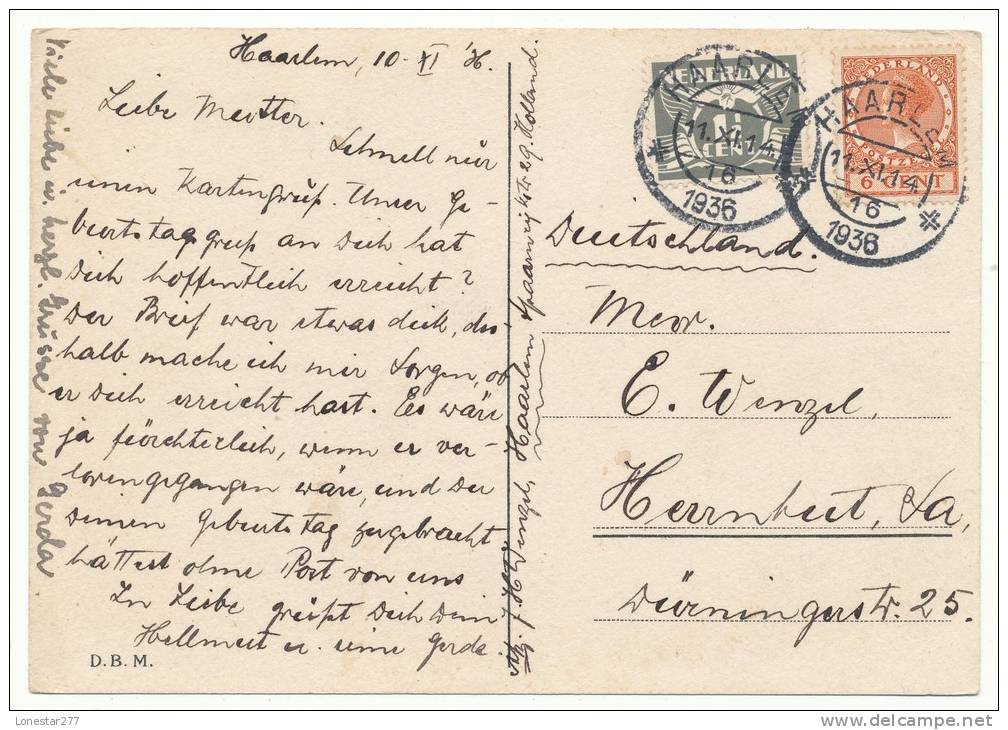 Haarlem, 10. XI '36.
Liebe Mutter.
Schnell nur
einen Kartengruß. Unser Ge-
burtstagsgruß an Dich hat
Dich hoffentlich erreicht?
Der Brief war etwas dick, des-
halb mache ich mir Sorgen, ob
er Dich erreicht hast. Es wäre
ja fürchterlich, wenn er ver-
lorengegangen wäre, und Du
Deinen Geburtstag zugebracht
hättest ohne Post von uns
In Liebe grüßt Dich Dein
Hellmut u. seine Gerda
D.B.M.
Viele liebe u. herzl. Grüsse von Gerda
H. Wenzel, Haarlem Spaarnrijkstr 29. Holland.
NEDERLAND
CENT
HAARLEM
11.XI.14
16
1936
NEDERLAND
POSTZEGEL
6 CENT
HAARLEM
11.XI.14
16
1936
Deutschland.
E. Wenzel,
Herrnhut, Sa,
Dürningerstr. 25.
Lonestar277
www.delcampe.net